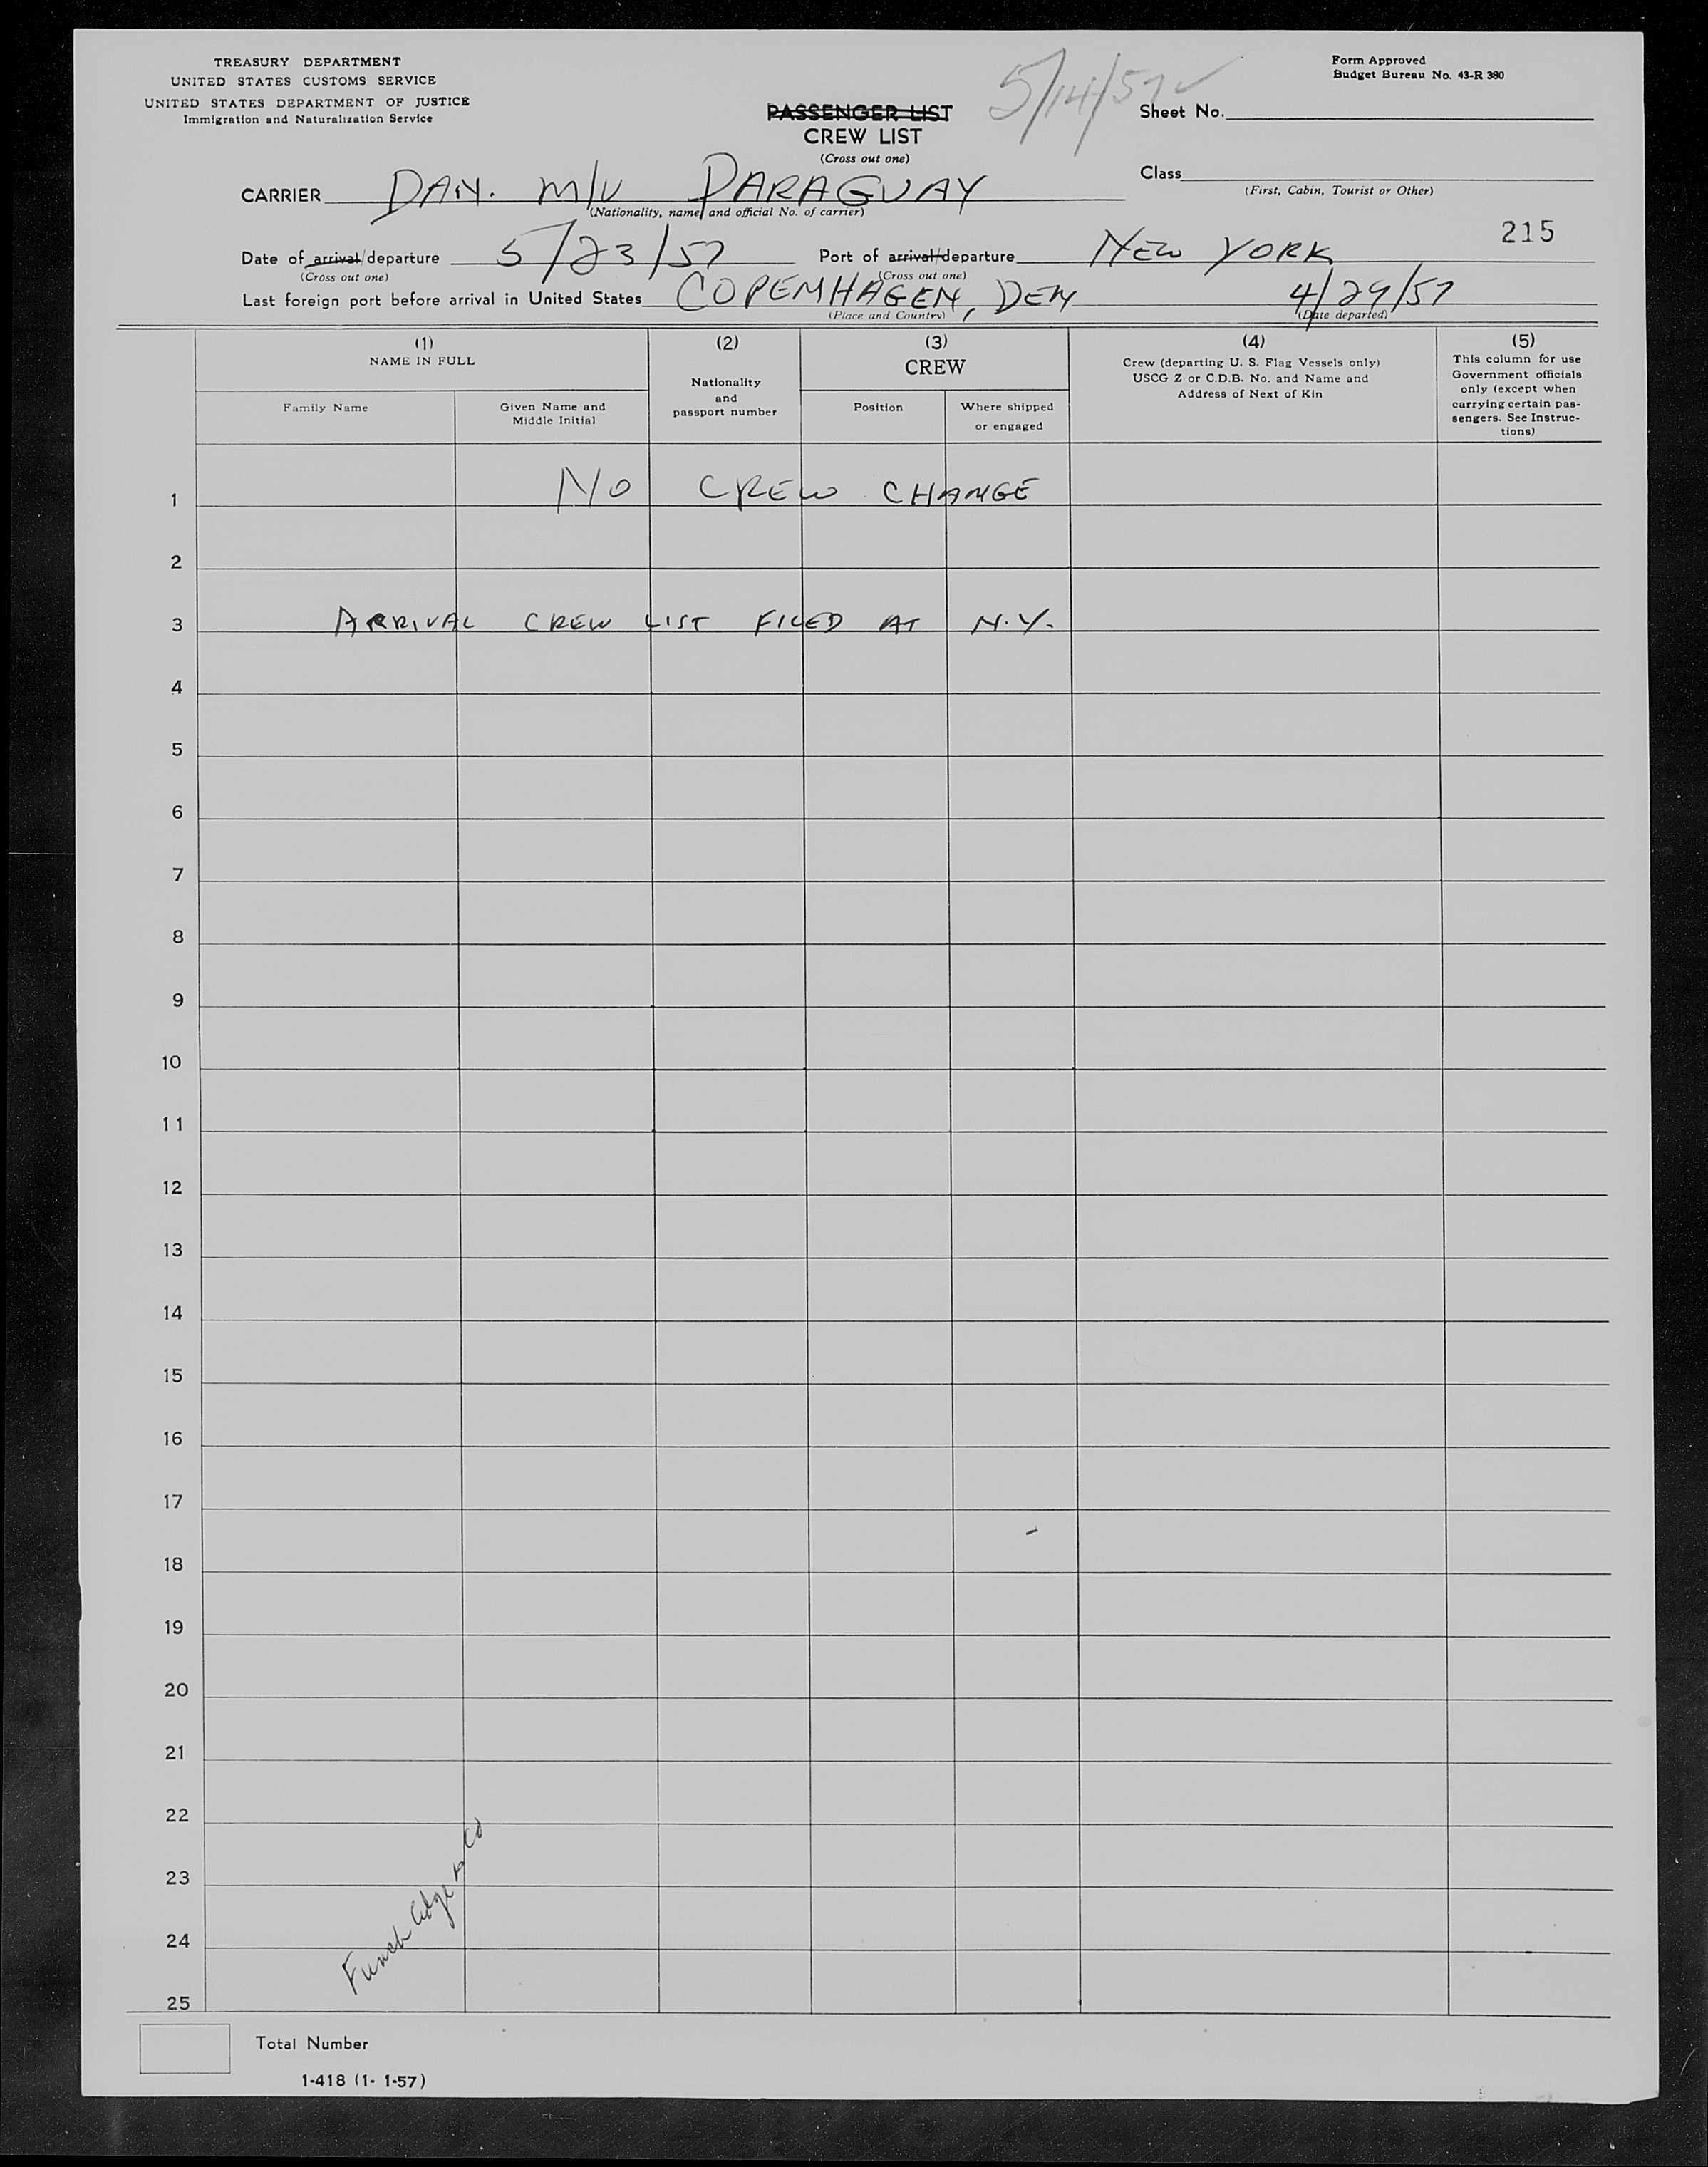 TREASURY DEPARTMENT
UNITED STATES CUSTOMS SERVICE
UNITED STATES DEPARTMENT OF JUSTICE
Immigration and Naturalization Service
5/14/57
Form Approved
Budget Bureau No. 43-R 380
PASSENGER LIST
CREW LIST
(Cross out one)
Sheet No.
CARRIER DAN. M/V PARAGUAY
(Nationality, name, and official No. of carrier)
Class
(First, Cabin, Tourist or Other)
215
Date of arrival/departure 5/23/57 Port of arrival/departure NEW YORK
(Cross out one) (Cross out one)
Last foreign port before arrival in United States COPENHAGEN, DEN 4/29/57
(Place and Country) (Date departed)
(1)
NAME IN FULL
Family Name
Given Name and
Middle Initial
(2)
Nationality
and
passport number
(3)
CREW
Position
Where shipped
or engaged
(4)
Crew (departing U. S. Flag Vessels only)
USCG Z or C.D.B. No. and Name and
Address of Next of Kin
(5)
This column for use
Government officials
only (except when
carrying certain pas-
sengers. See Instruc-
tions)
1 NO CREW CHANGE
2
3 ARRIVAL CREW LIST FILED AT N.Y.
4
5
6
7
8
9
10
11
12
13
14
15
16
17
18
19
20
21
22
23
24
25
Funch Edye & Co
Total Number
1-418 (1- 1-57)